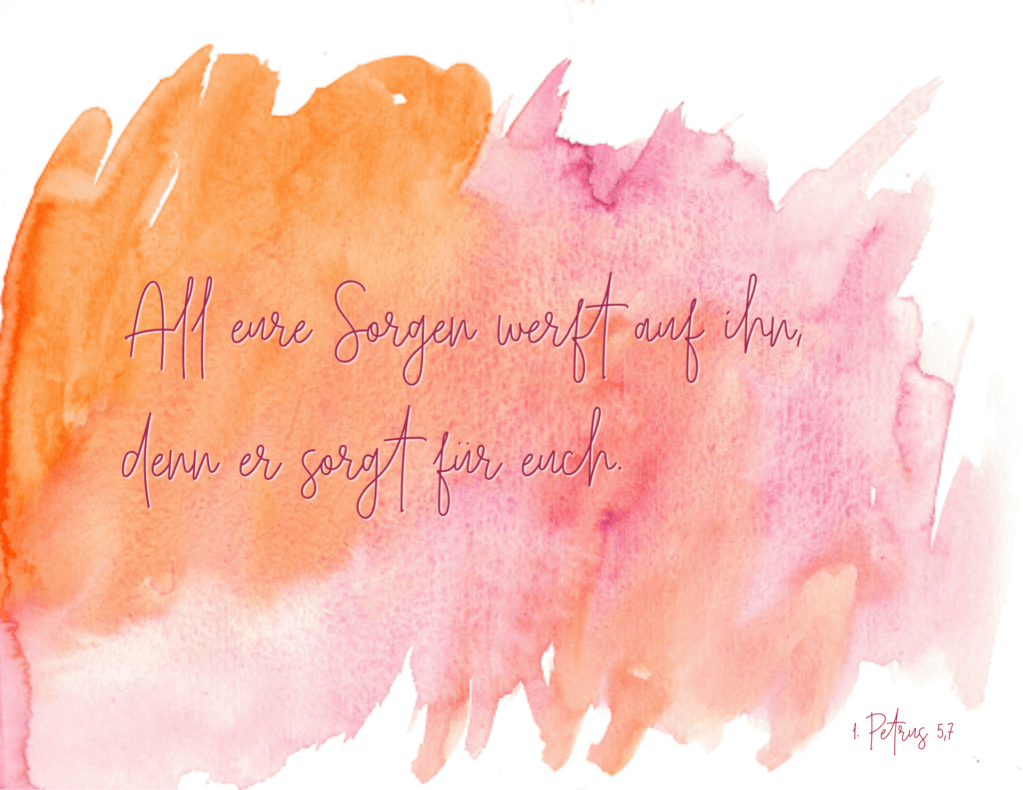 All eure Sorgen werft auf ihn,
denn er sorgt für euch.
1. Petrus 5,7